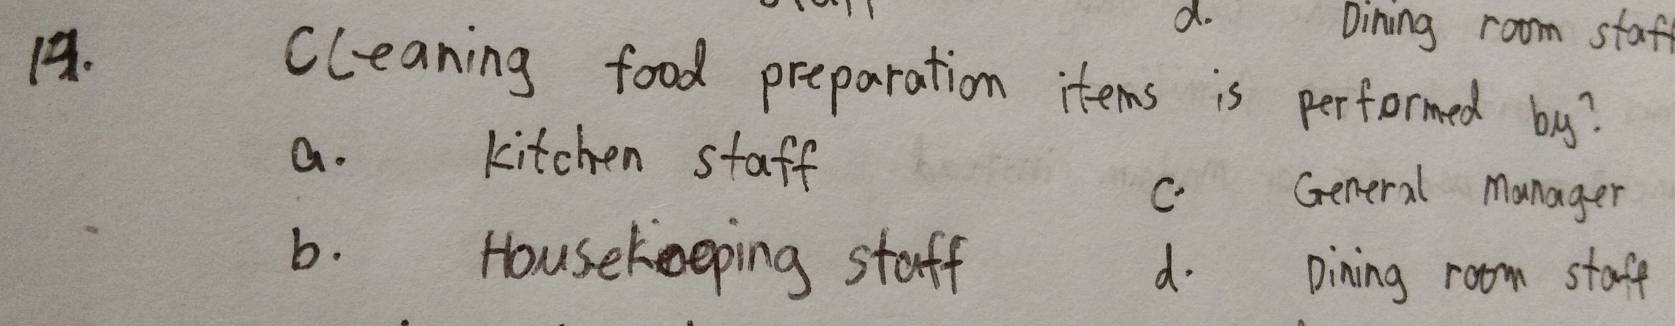 d. Dining room staff
19. Cleaning food preparation items is performed by?
a. Kitchen staff
c. General Manager
b. Housekeeping staff
d. Dining room staff